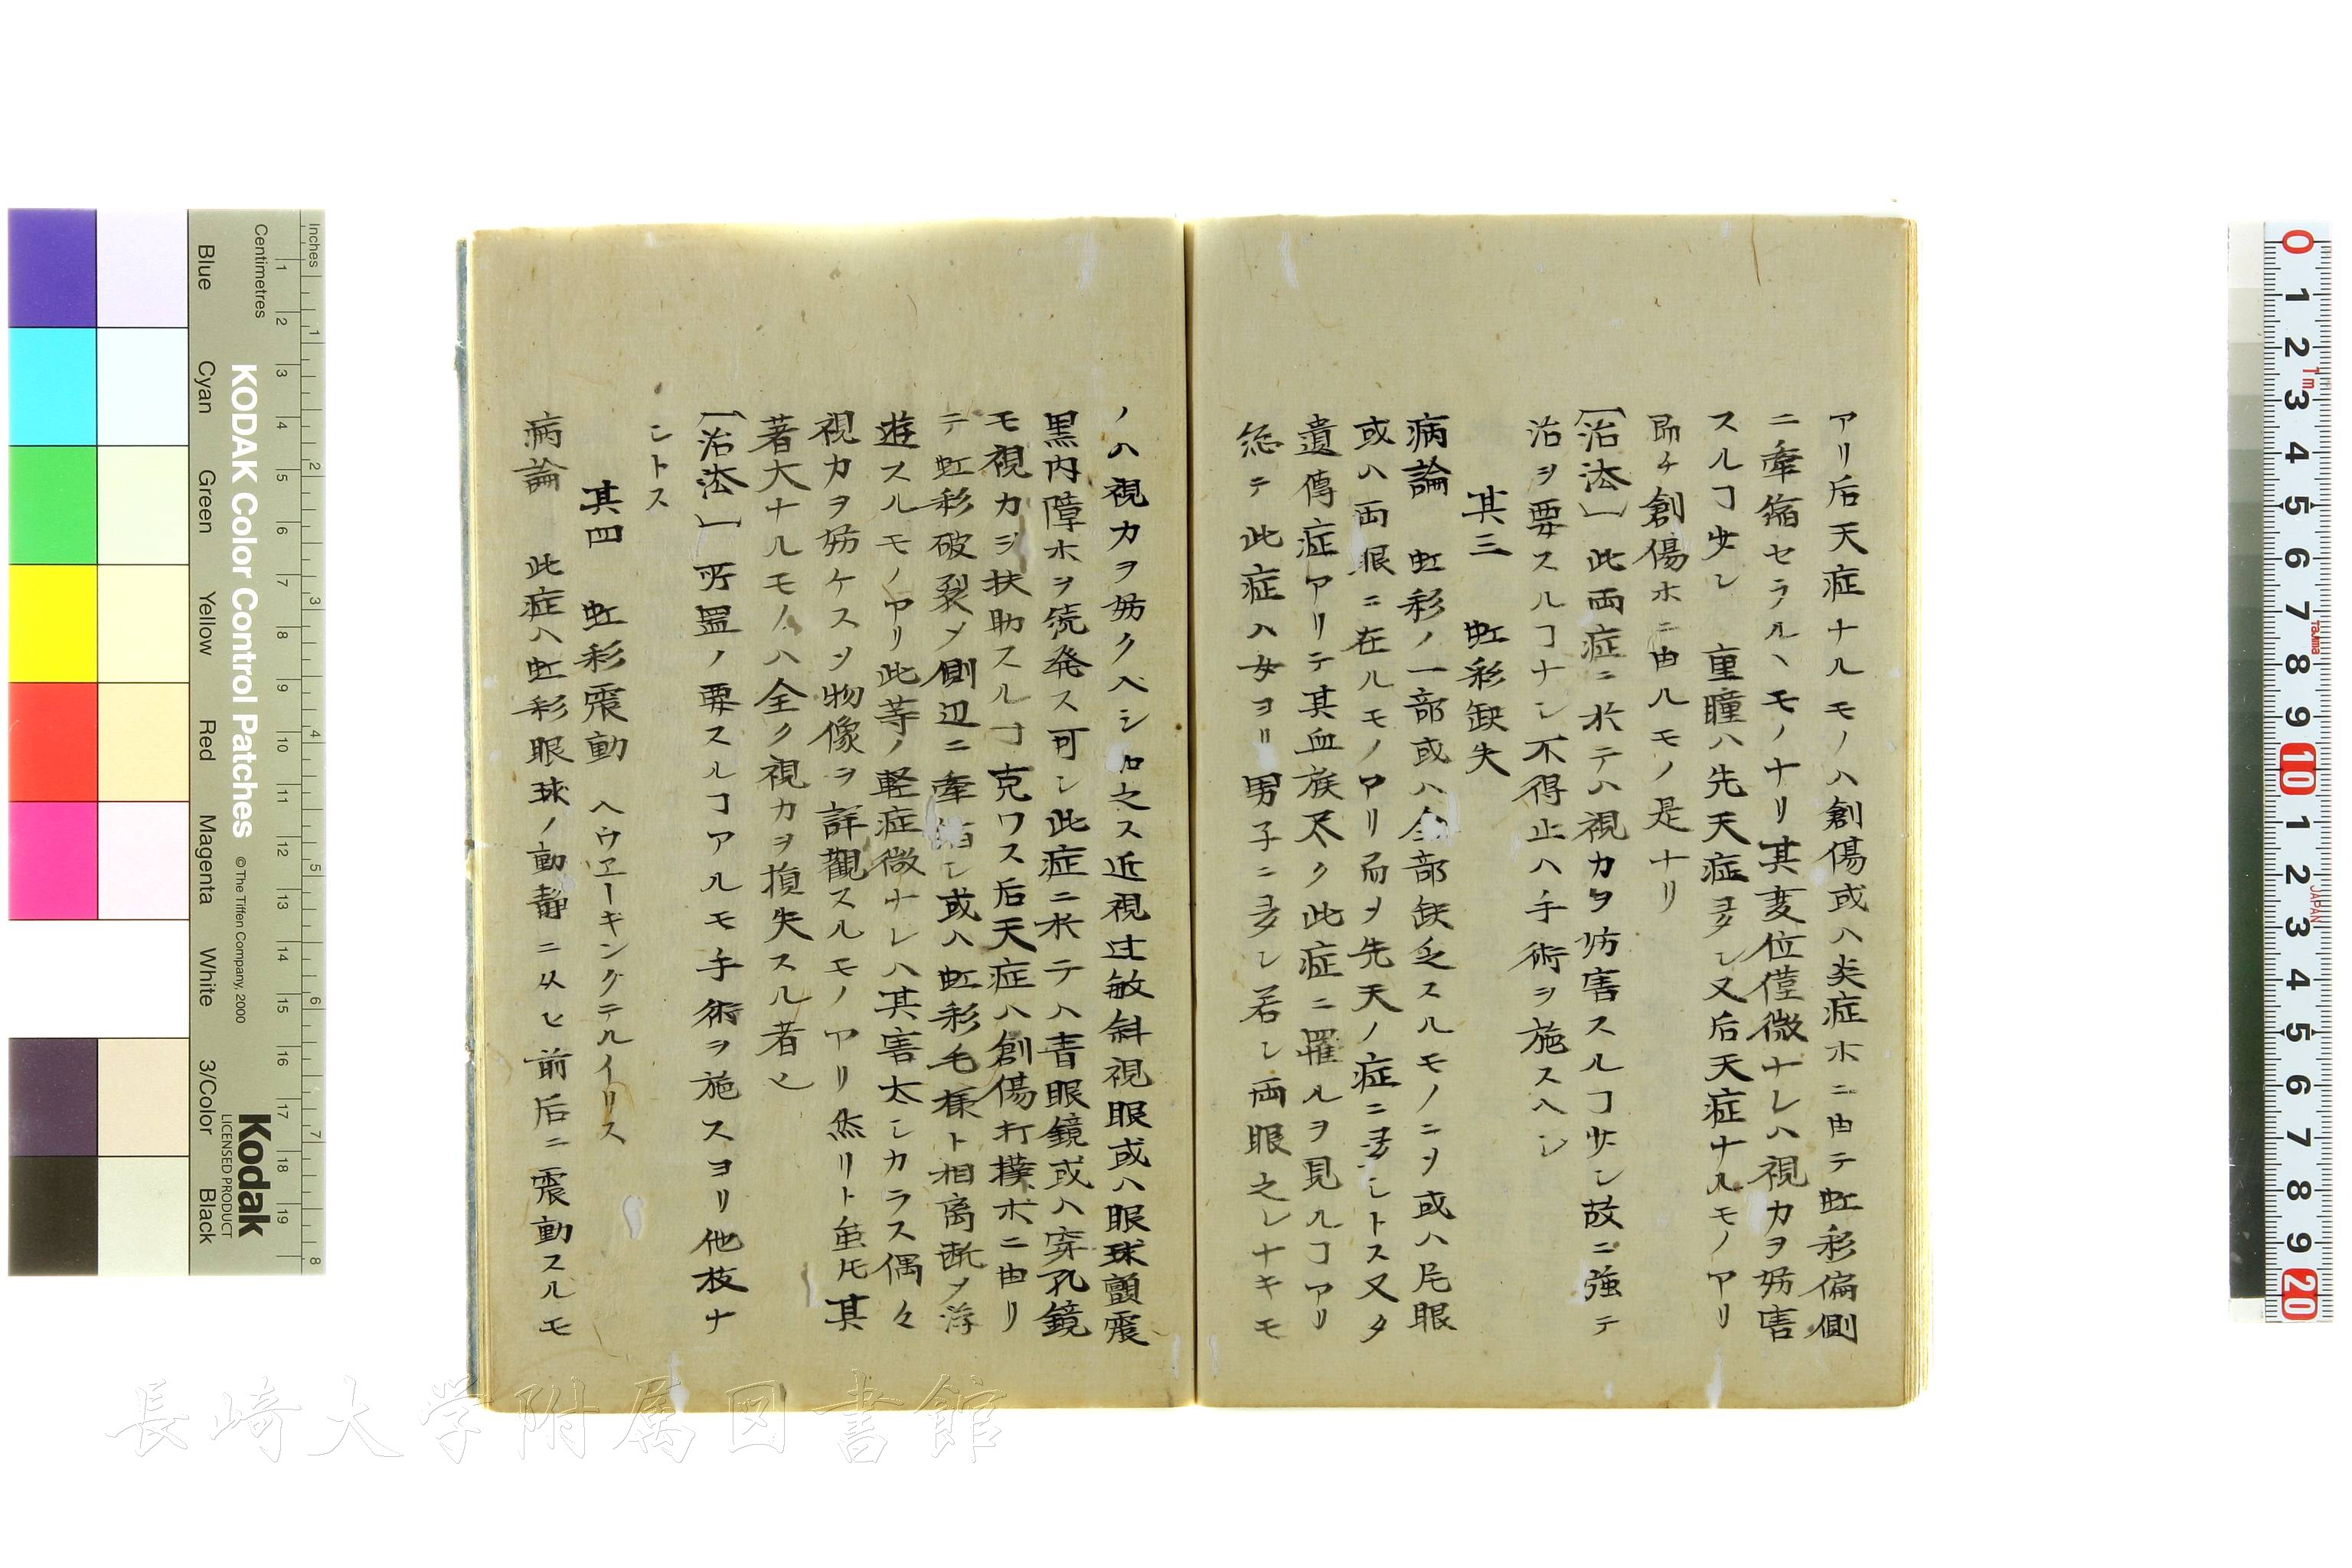 アリ后天症ナルモノハ創傷或ハ炎症ホニ由テ虹彩偏側
ニ牽縮セラルヽモノナリ其変位僅微ナレハ視力ヲ妨害
スルヿ少シ 重瞳ハ先天症多シ又后天症ナルモノアリ
即チ創傷ホニ由ルモノ是ナリ
〔治法〕此両症ニ於テハ視力ヲ妨害スルヿ少シ故ニ強テ
治ヲ要スルヿナシ不得止ハ手術ヲ施スヘシ
其三 虹彩缺失
病論 虹彩ノ一部或ハ全部缺乏スルモノニヲ或ハ片眼
或ハ両眼ニ在ルモノアリ而ヲ先天ノ症ニ多シトス又タ
遺傳症アリテ其血族尽ク此症ニ罹ルヲ見ルヿアリ
総テ此症ハ女ヨリ男子ニ多シ若シ両眼之レナキモ
ノハ視力ヲ妨クヘシ加之ス近視过敏斜視眼或ハ眼球顫震
黒内障ホヲ続発ス可シ此症ニ於テハ青眼鏡或ハ穿孔鏡
モ視力ヲ扶助スルヿ克ワス后天症ハ創傷打撲ホニ由リ
テ虹彩破裂メ側辺ニ牽縮シ或ハ虹彩毛様ト相离断メ浮
遊スルモノアリ此等ノ軽症微ナレハ其害太シカラス偶々
視力ヲ妨ケスヲ物像ヲ詳觀スルモノアリ然リト虽𪜈其
著大ナルモノハ全ク視力ヲ損失スル者也
〔治法〕所置ノ要スルヿアルモ手術ヲ施スヨリ他枝ナ
シトス
其四 虹彩震動 ヘウヱーキングテルイリス
病論 此症ハ虹彩眼球ノ動靜ニ从ヒ前后ニ震動スルモ
長崎大学附属図書館
KODAK Color Control Patches
© The Tiffen Company, 2000
Kodak
LICENSED PRODUCT
Inches
Centimetres
Blue
Cyan
Green
Yellow
Red
Magenta
White
3/Color
Black